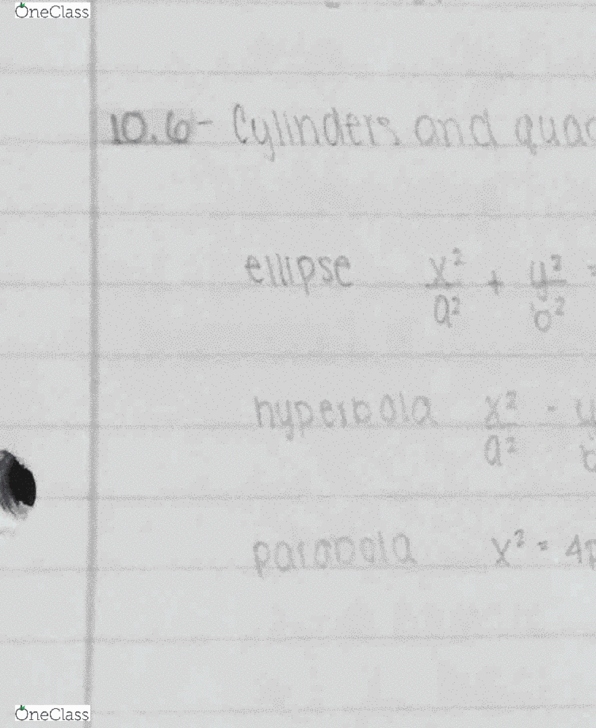 OneClass
10.6- Cylinders and quad
ellipse x²/a² + y²/b² =
hyperbola x²/a² - y
parabola x² = 4p
OneClass